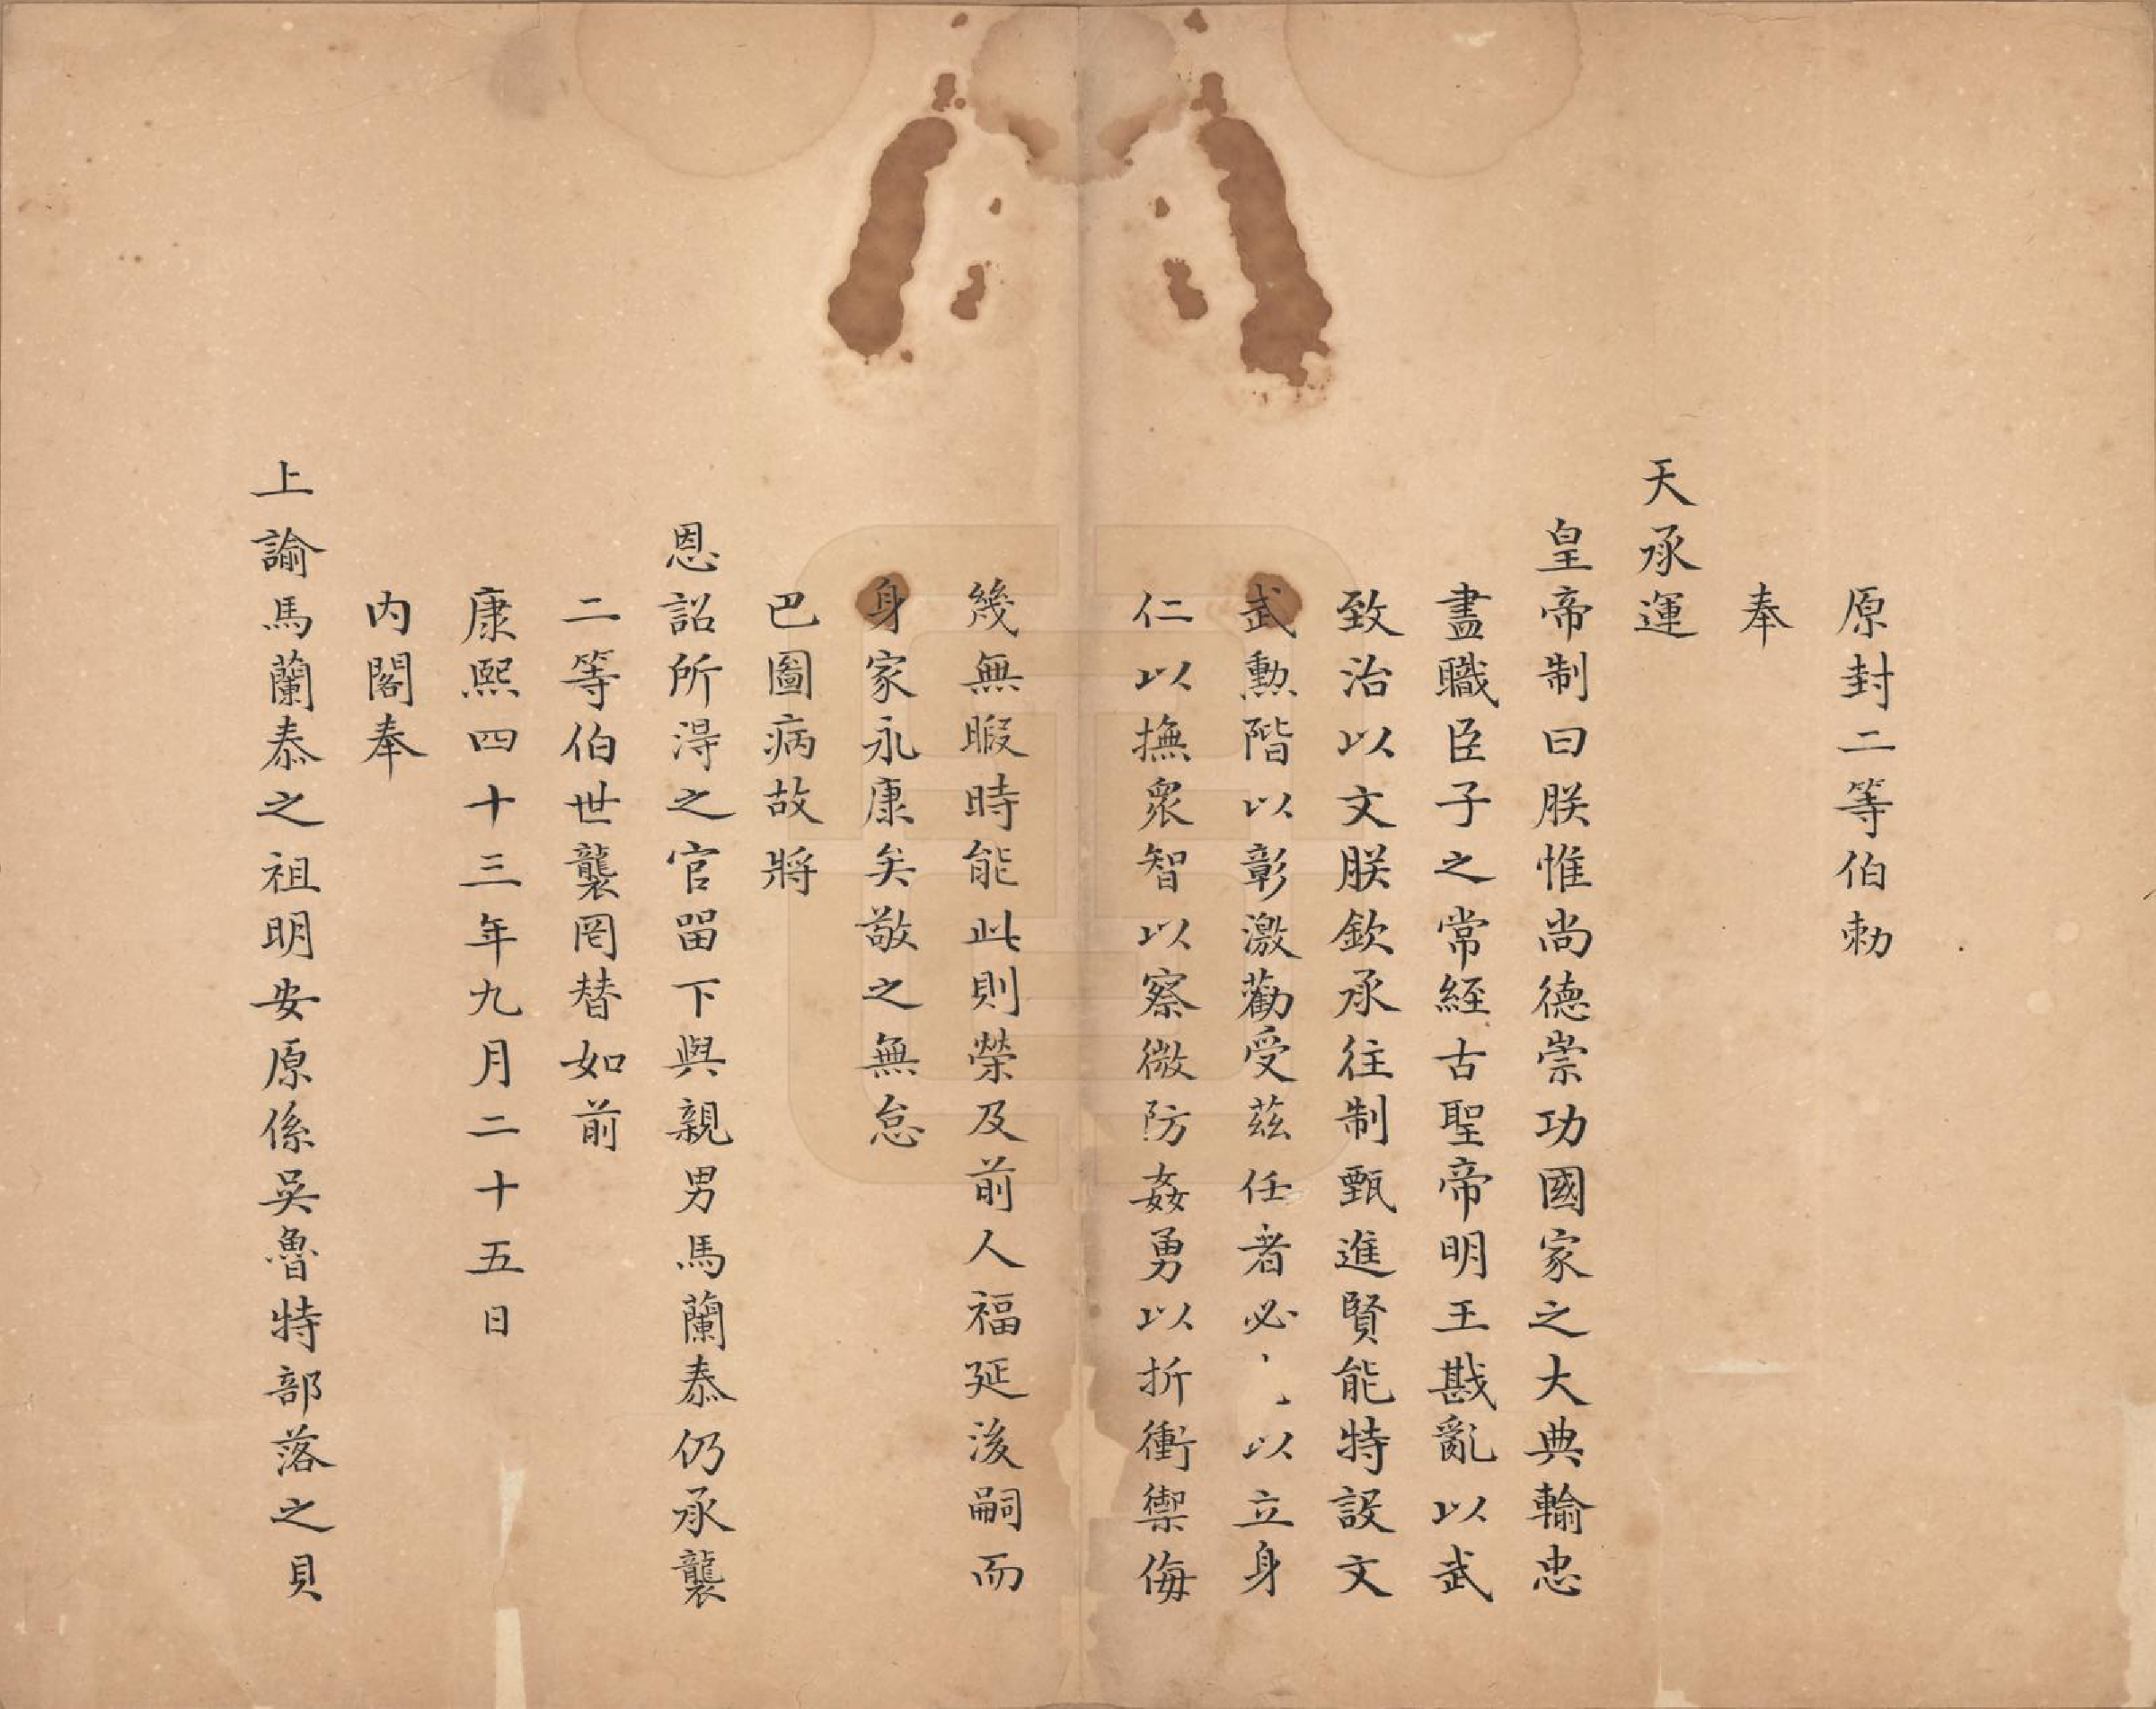 原封二等伯勅
奉
天承運
皇帝制曰朕惟尚德崇功國家之大典輸忠
盡職臣子之常經古聖帝明王戡亂以武
致治以文朕欽承往制甄進賢能特設文
武勲階以彰激勸受茲任者必以立身
仁以撫衆智以察微防姦勇以折衝禦侮
幾無暇時能此則榮及前人福延後嗣而
身家永康矣敬之無怠
巴圖病故將
恩詔所得之官留下與親男馬蘭泰仍承襲
二等伯世襲罔替如前
康熙四十三年九月二十五日
内閣奉
上諭馬蘭泰之祖明安原係吳魯特部落之貝